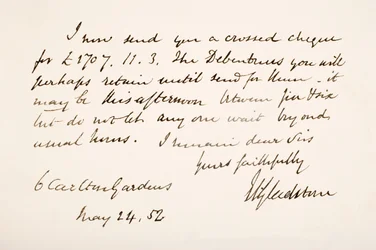 I now send you a crossed cheque
for £1707. 11. 3. The Debentures you will
perhaps retain until send for them - it
may be this afternoon between five & six
but do not let any one wait beyond
usual hours. I remain dear Sirs
Yours faithfully
WEGladstone
6 Carlton Gardens
May 24. 52